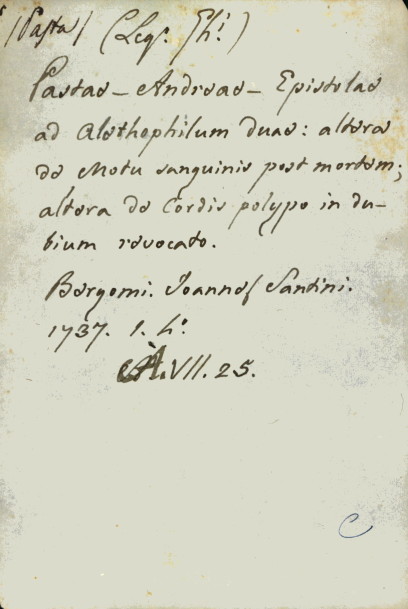 (Pasta) (Leg. Ghi.)
Pastae - Andreae - Epistolae
ad Alethophilum duae: altera
de Motu sanguinis post mortem;
altera de Cordis polypo in du-
bium revocato.
Bergomi. Joannes Santini.
1737. 1. 4°.
A. VII. 25.
C